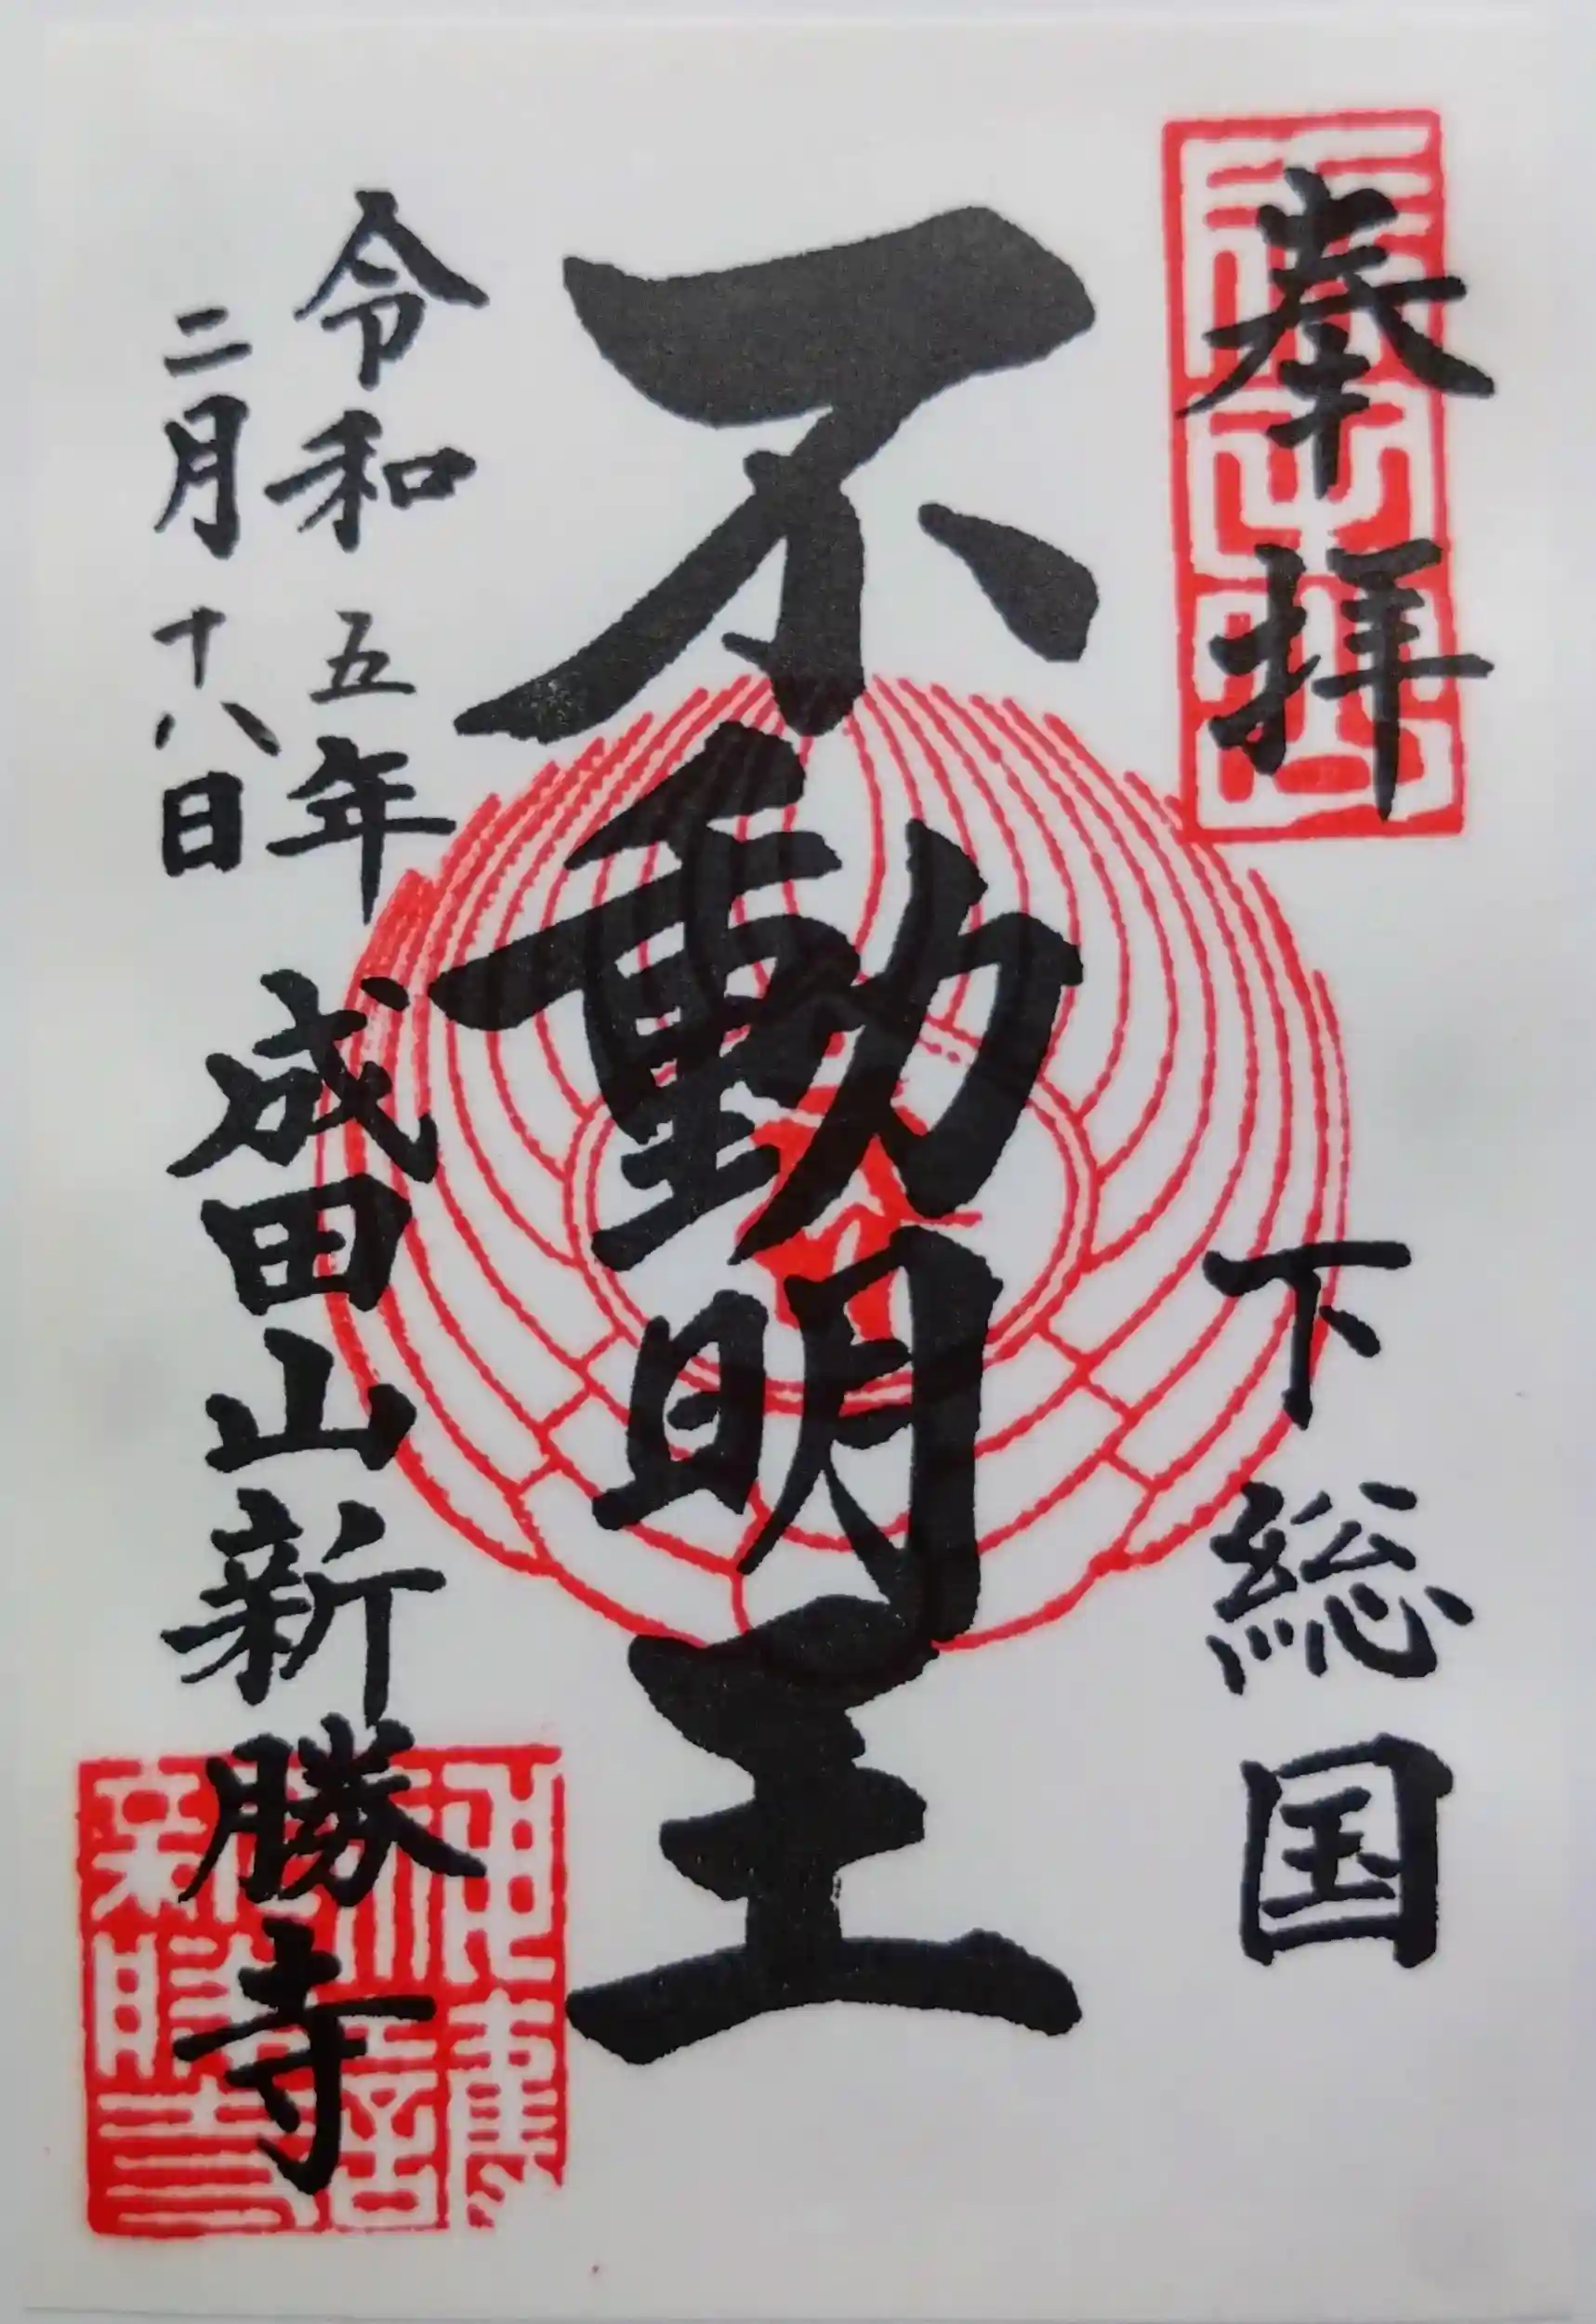 奉拝
下総国
不動明王
令和五年
二月十八日
成田山新勝寺